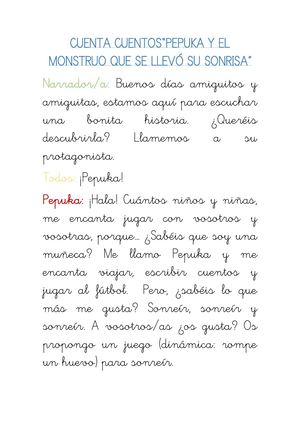 CUENTA CUENTOS"PEPUKA Y EL
MONSTRUO QUE SE LLEVÓ SU SONRISA"
Narrador/a: Buenos días amiguitos y
amiguitas, estamos aquí para escuchar
una bonita historia. ¿Queréis
descubrirla? Llamemos a su
protagonista.
Todos: ¡Pepuka!
Pepuka: ¡Hala! Cuántos niños y niñas,
me encanta jugar con vosotros y
vosotras, porque... ¿Sabéis que soy una
muñeca? Me llamo Pepuka y me
encanta viajar, escribir cuentos y
jugar al fútbol. Pero, ¿sabéis lo que
más me gusta? Sonreír, sonreír y
sonreír. A vosotros/as ¿os gusta? Os
propongo un juego (dinámica: rompe
un huevo) para sonreír.